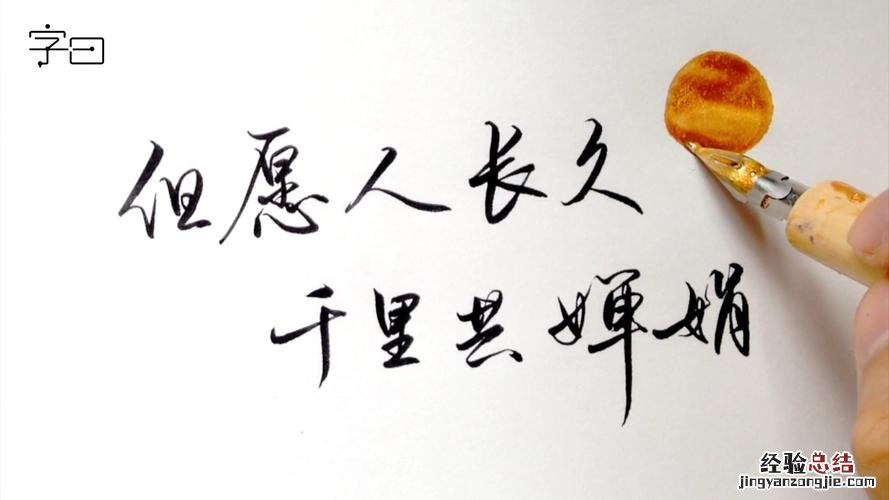 字曰
但愿人长久
千里共婵娟
经验总结
jingyanzongjie.com